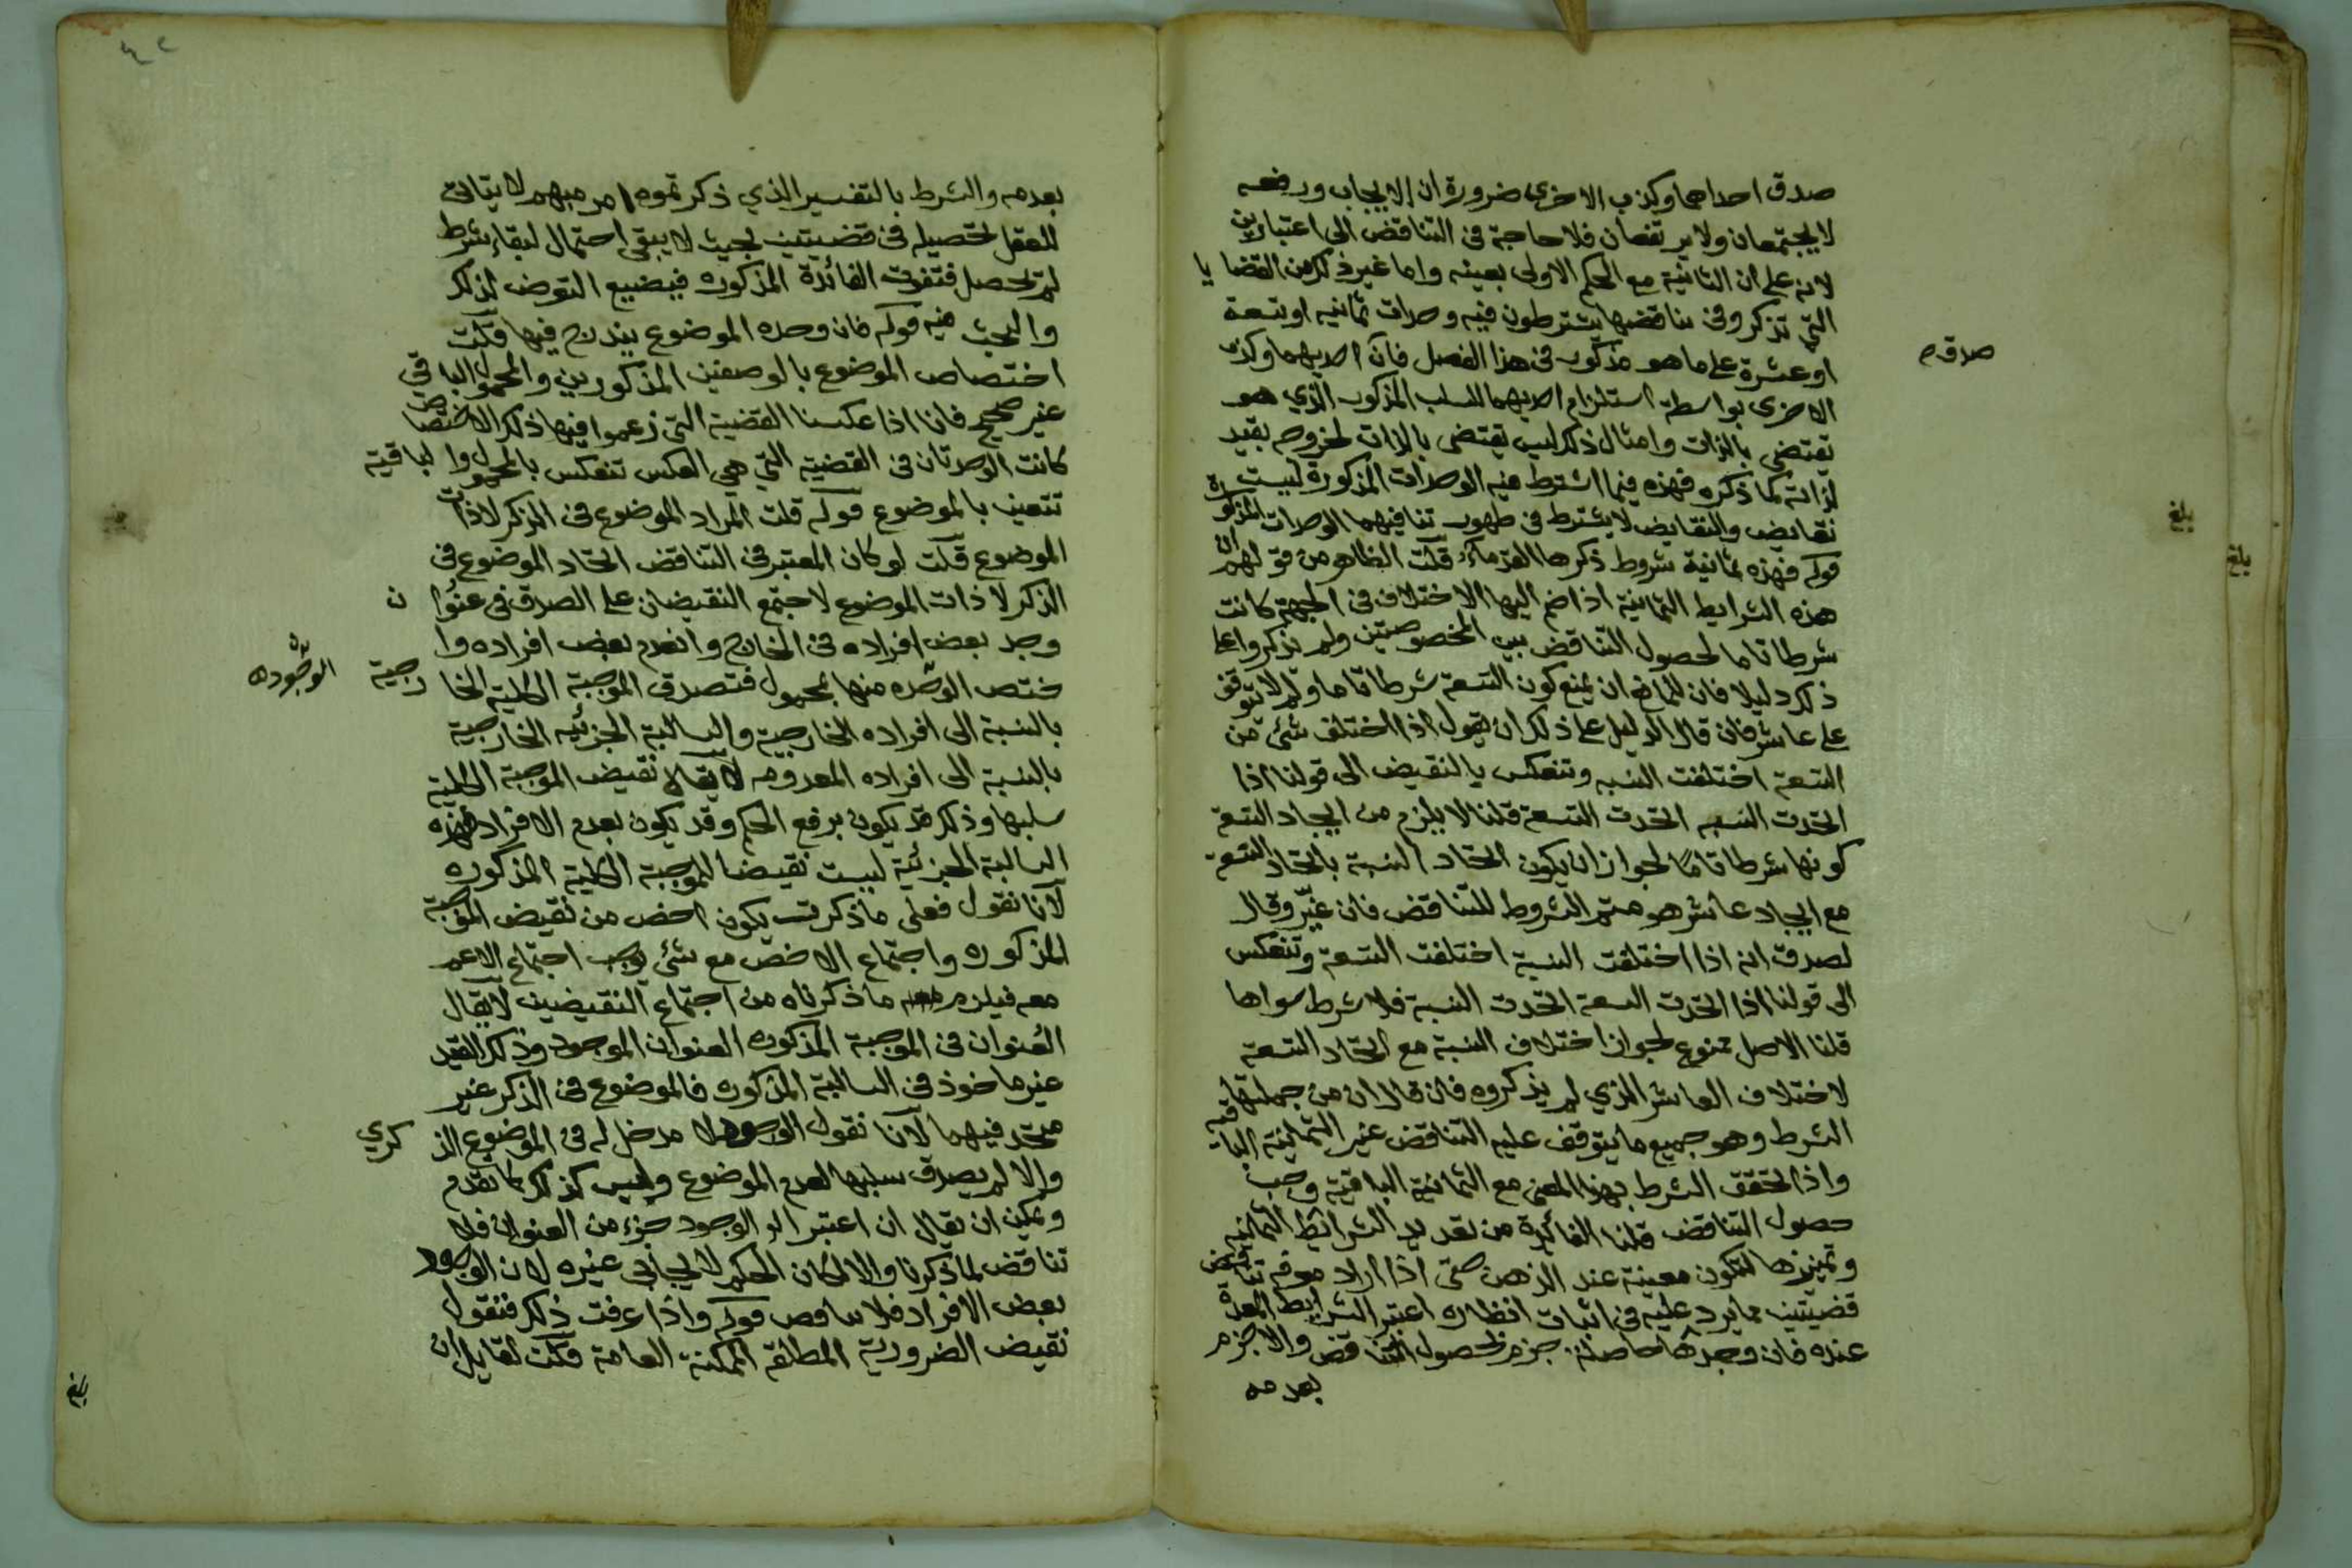 صدق احداهما وكذب الاخرى ضرورة ان الايجاب ورفعه
لا يجتمعان ولا يرتفعان فلا حاجة فى التناقض الى اعتبارين
لانه على ان الثانية مع الحكم الاولى بعينه واما غير ذلك من القضايا
التى تذكر وفى تناقضها يشترطون فيه وحدات ثمانيه او تسعة
او عشرة على ما هو مذكور فى هذا الفصل فان احديهما وكذب
صدق
الاخرى بواسطة استلزام احديهما للسلب المذكور الذي هو
تقتضى بالذات وامثال ذلك ليس يقتضى بالذات لخروجه بقيد
لذاته كما ذكره فهذه فيما اشترط فيه الوحدات المذكورة ليست
نقايض والنقايض لا يشترط فى ظهور تنافيهما الوحدات المذكورة
قوله فهذه ثمانية شروط ذكرها القدماء قلت الظاهر من قولهم ان
هذه الشرايط الثمانية اذا ضم اليها الاختلاف فى الجهة كانت
شرطا تاما لحصول التناقض بين المخصوصتين ولم يذكروا على
ذلك دليلا فان للمانع ان يمنع كون التسعة شرطا تاما ولم لا تتوقف
على عاشر فان قال الدليل على ذلك ان نقول اذا اختلف شئ من
التسعة اختلفت النسبه وتنعكس بالنقيض الى قولنا اذا
اتحدت النسبه اتحدت التسعة قلنا لا يلزم من ايجاد التسعة
كونها شرطا تاما لجواز ان يكون اتحاد النسبة باتحاد التسعة
مع ايجاد عاشر هو متمم الشروط للتناقض فان غيّر وقال
لصدق انه اذا اختلفت النسبة اختلفت التسعة وتنعكس
الى قولنا اذا اتحدت التسعة اتحدت النسبة فلا شرط سواها
قلنا الاصل ممنوع لجواز اختلاف النسبة مع اتحاد التسعة
لاختلاف العاشر الذي لم يذكروه فان قال ان من جملتها
الشرط وهو جميع ما يتوقف عليه التناقض غير الثمانية الباقية
واذا تحقق الشرط بهذا المعنى مع الثمانية الباقية وجب
حصول التناقض قلنا الفائدة من تعديد الشرائط الثمانيه
وتمييزها لتكون معينة عند الذهن حتى اذا اراد معرفة تناقض
قضيتين مما يرد عليه فى اثبات انظاره اعتبر الشرايط المعدة
عنده فان وجدها حاصلة جزم لحصول التناقض والا جزم
بعدمه
بلغ
بلغ
بعدمه والشرط بالتفسير الذي ذكرتموه امر مبهم لا يتاتى
للعقل تحصيله فى قضيتين بحيث لا يبقى احتمال لبقاء شرط
لم تحصل فتفوت الفائدة المذكوره فيضيع التعرض لذلك
والبحث فيه قوله فان وحده الموضوع يندرج فيها قلت
اختصاص الموضوع بالوصفين المذكورين والمحمول الباقي
غير صحيح فانا اذا عكسنا القضية التى زعموا فيها ذلك الاختصاص
كانت الوحدتان فى القضية التى هي العكس تنعكس بالمحمول والباقية
تتعين بالموضوع قوله قلت المراد الموضوع فى الذكر لا ذات
الموضوع قلت لو كان المعتبر فى التناقض اتحاد الموضوع فى
الذكر لا ذات الموضوع لاجتمع النقيضان على الصدق فى عنوان
وجد بعض افراده فى الخارج وانعدم بعض افراده وا
ختص الموجوده منها بمحمول فتصدق الموجبة الكلية الخارجية
الموجوده
بالنسبة الى افراده الخارجية والسالبة الجزئيه الخارجية
بالنسبة الى افراده المعدومه لا يقال نقيض الموجبة الكلية
سلبها وذلك قد يكون برفع الحكم وقد يكون بعدم الافراد فهذه
السالبة الجزئية ليست نقيضا للموجبة الكلية المذكوره
لانا نقول فعلى ما ذكرت يكون اخص من نقيض الموجبة
المذكوره واجتماع الاخص مع شئ يوجب اجتماع الاعم
معه فيلزم ما ذكرناه من اجتماع النقيضين لا يقال
العُنوان فى الموجبة المذكوره العنوان الموجود وذلك القيد
غير ماخوذ فى السالبة المذكوره فالموضوع فى الذكر غير
متحد فيهما لانا نقول الوجود لا مدخل له فى الموضوع الذكري
والا لم يصدق سلبها لعدم الموضوع وليس كذلك كما تقدم
ويمكن ان يقال ان اعتبر الوجود جزء من العنوان فلا
تناقض لما ذكرنا والا لكان الحكم الايجابى غيره لان الوجود
بعض الافراد فلا تناقض قوله واذا عرفت ذلك فنقول
نقيض الضرورية المطلقة الممكنة العامة قلت لقايل ان
بلغ